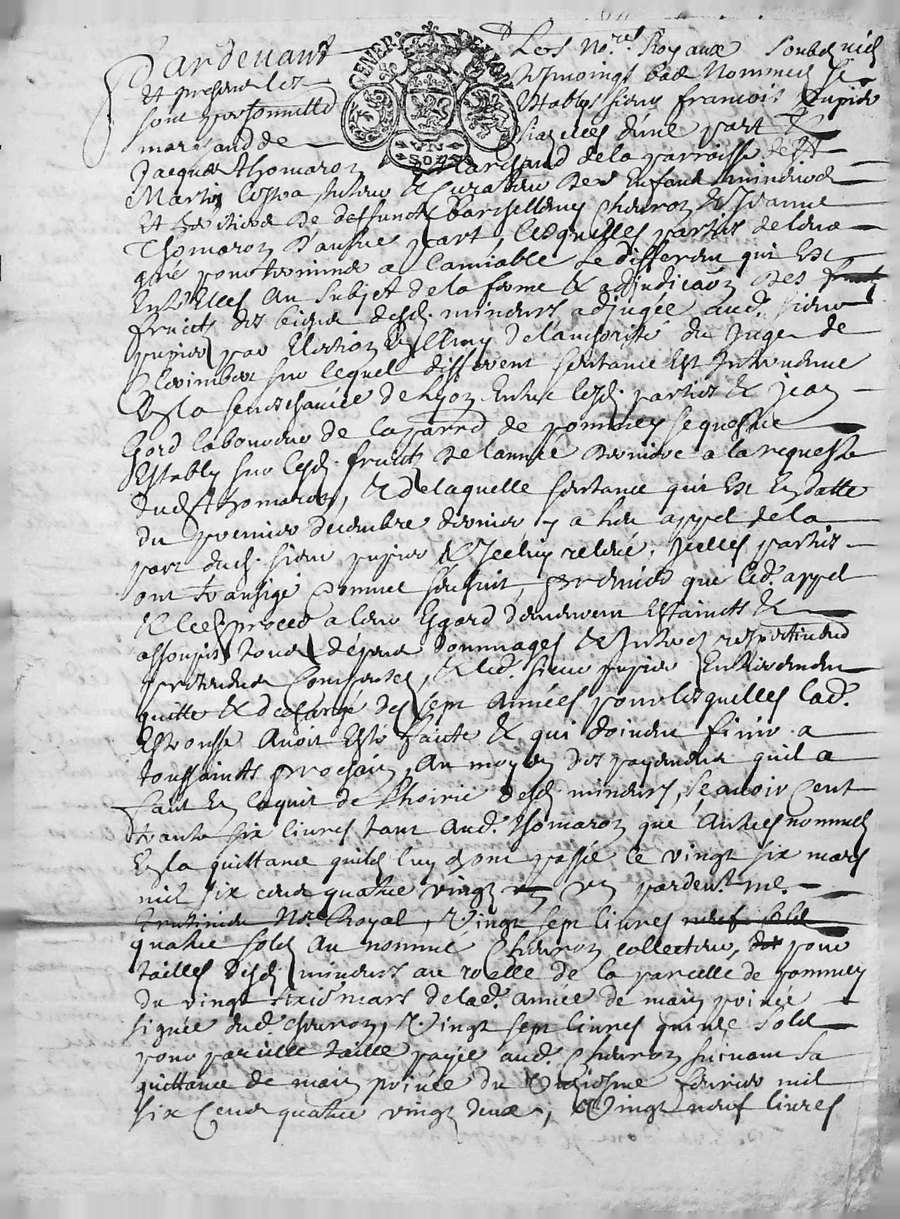 Pardevant Les No.res Royaux Soubsignés
Et presens les tesmoings bas Nommes se
sont personnellement Establys sieur francois Pupier
marchand de d'une part Et
Jacques Thomaron Marchand de la parroisse de St
Martin tuteur & Curateur des Enfans mineurs
Et heritiers de deffuncts Barthellemy Chevron & Jeanne
Thomaron d'autre part, lesquelles parties de leur
gré pour terminer a l'amiable le differen qui Est
Entr'Elles Au Subjet de la ferme & adjudicaon des
fruicts des biens desd. mineurs adjugée aud. sieur
pupier par de l'authorité du Juge de
sur lequel different sentance Est Intervenue
En la seneschaucée de Lyon Entre lesd. parties & Jean
Gord laboureur de la parre de pommey sequestre
Estably sur lesd. fruicts de l'année derniere a la requeste
dud. Thomaron, & de laquelle sentance qui Est En datte
du premier decembre dernier y a heu appel de la
part dud. sieur pupier & Icelluy relevé, Icelles parties
ont transigé comme s'ensuit, premier que led. appel
& a leur Esgard demeurent Estaincts &
assoupis tous despens dommages & Interests respectivemt
pretendus Compensés, & led. sieur pupier Entierement
quitte & deschargé des sept Années pour lesquelles lad.
Estrousse Avoit Esté faite & qui doivent finir a
toussaincts prochain, Au moyen des payemens qu'il a
faict En l'aquit de l'hoirie desd. mineurs, sçavoir Cent
trante six livres tant Aud. Thomaron que Autres nommés
En la quittance qu'ils luy En ont passée le vingt six mars
mil six cens quatre vingt un pardevt. me.
No.re Royal, & Vingt sept livres neuf sols
quatre sols Au nommé Chevron collecteur, pour
tailles desd. mineurs au rolle de la parcelle de pommey
du vingt sixie mars de lad. année de main privée
signée dud. chevron, & Vingt sept livres quinze sols
pour pareille taille payée aud. Chevron suivant sa
quittance de main privée du fevrier mil
six Cens quatre vingt deux, & Vingt neuf livres
GENER. DE LYON
VN
SOLS